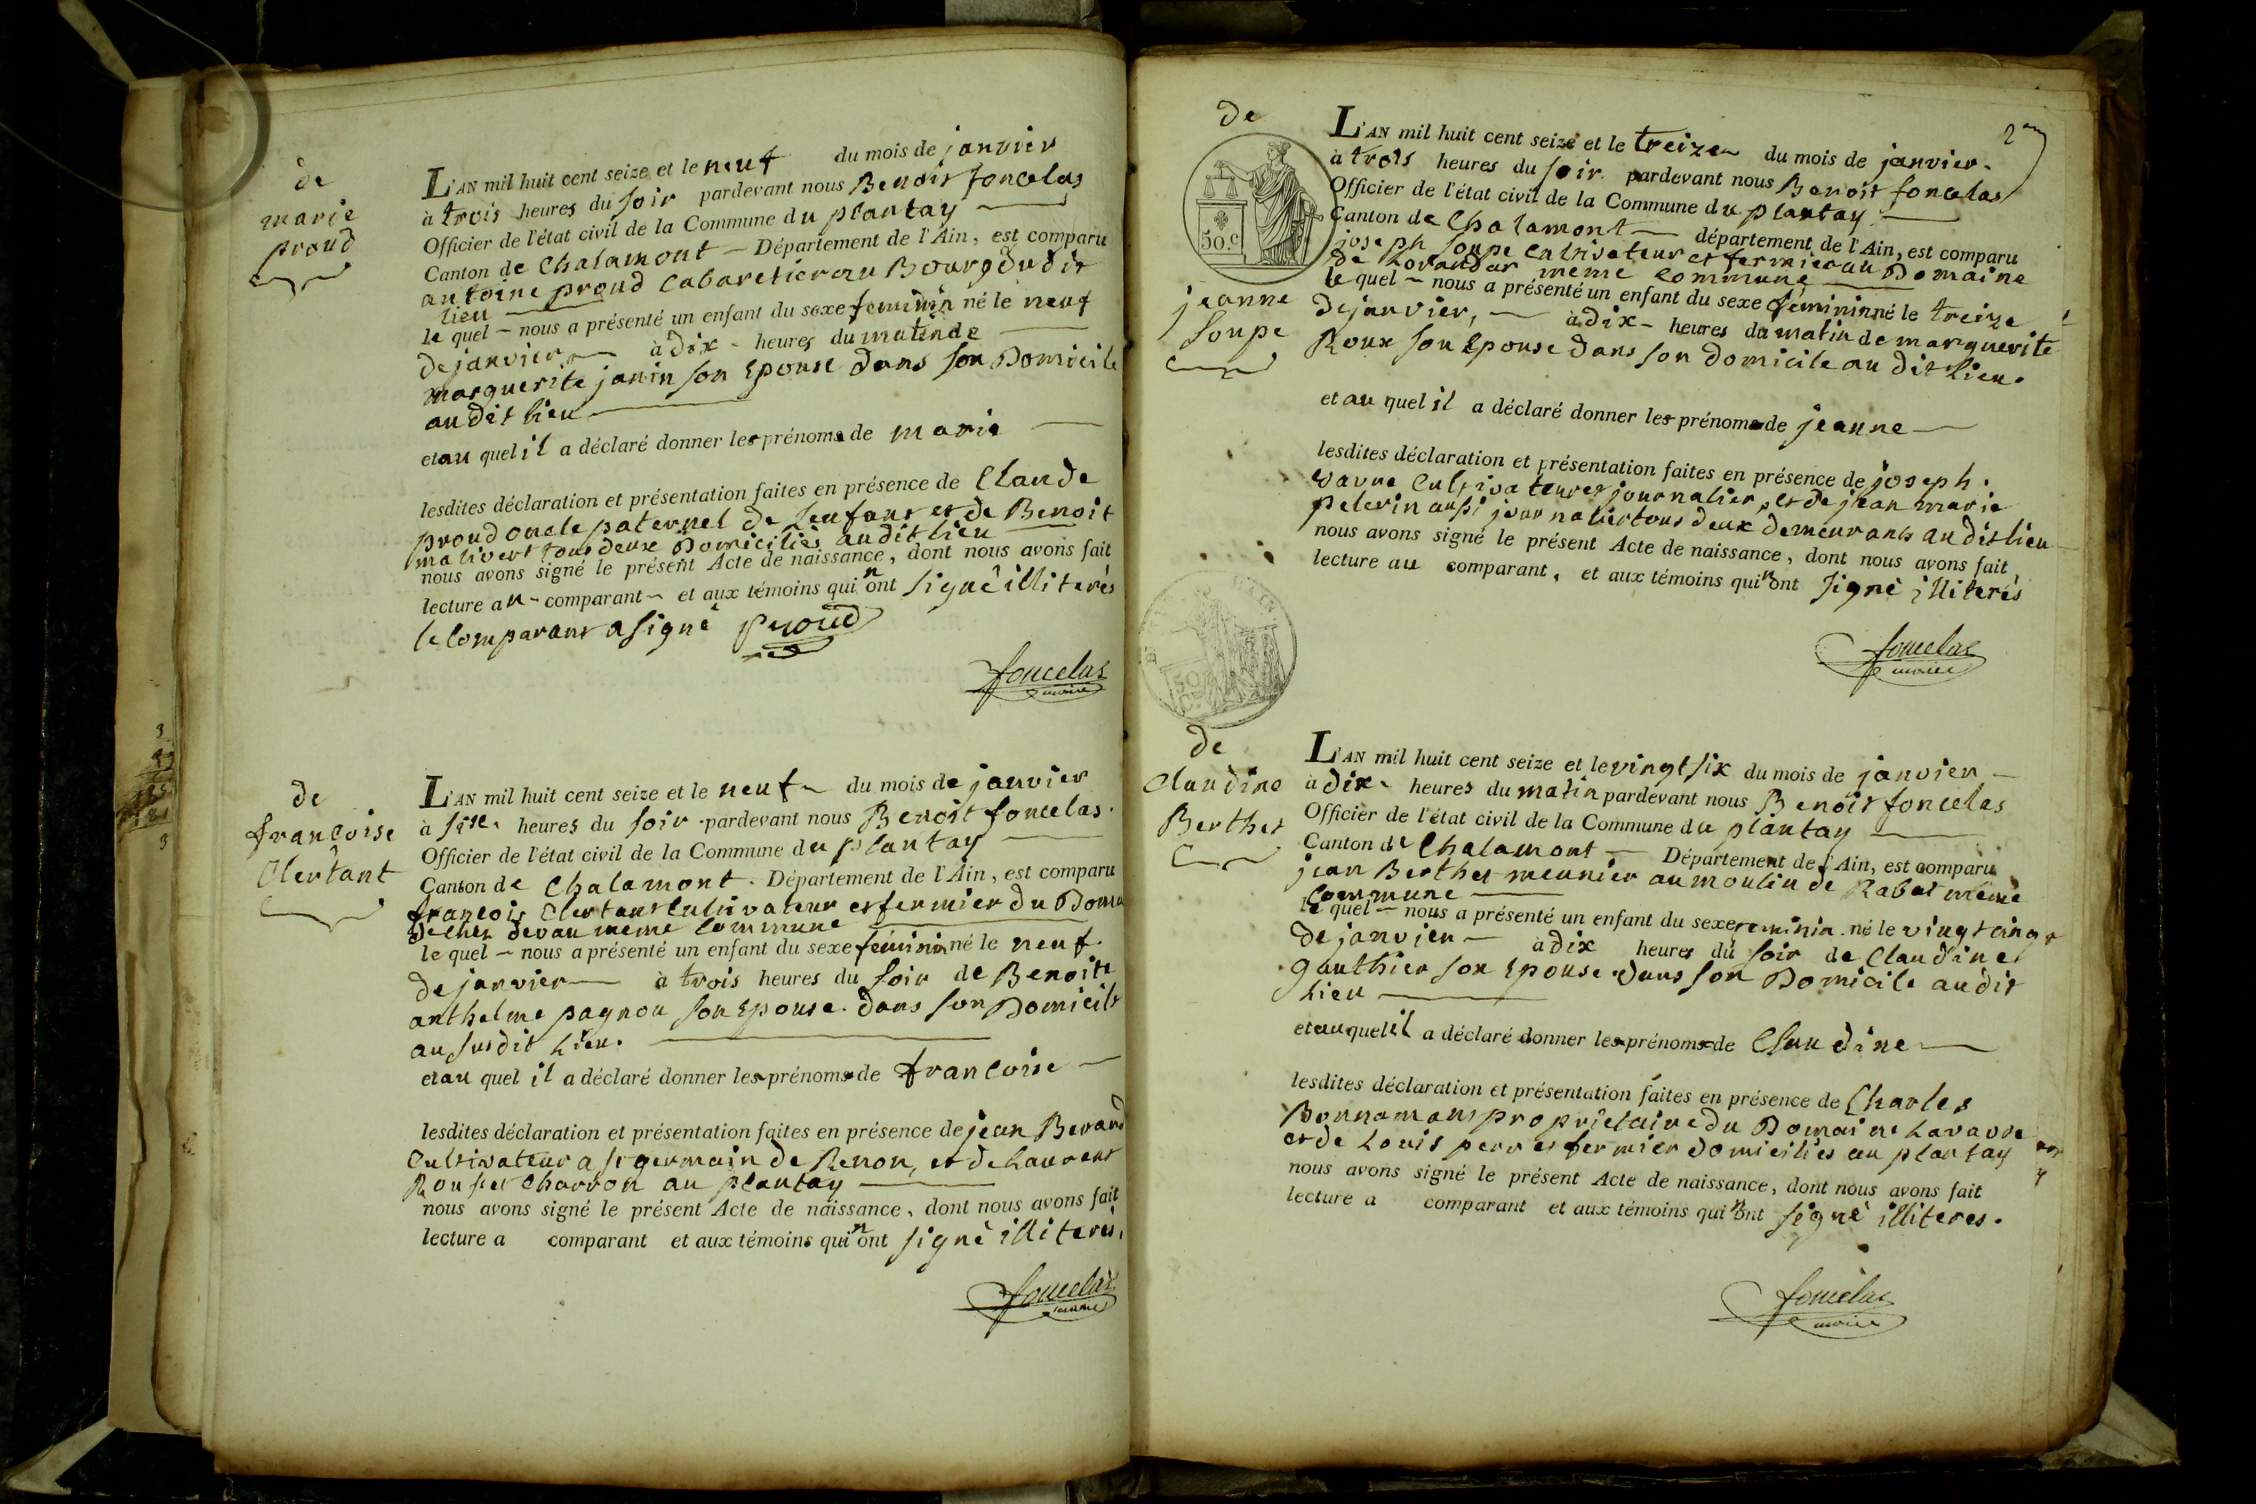 de
marie
proud
L'AN mil huit cent seize et le neuf du mois de janvier
à trois heures du soir pardevant nous Benoit foncelas
Officier de l'état civil de la Commune du plantay
Canton de Chalamont Département de l'Ain, est comparu
antoine proud Cabaretier au Bourg dudit
lieu
le quel nous a présenté un enfant du sexe feminin né le neuf
de janvier à dix heures du matin de
marguerite janin son Epouse dans son Domicile
audit lieu
et au quel il a déclaré donner les prénoms de marie
lesdites déclaration et présentation faites en présence de Claude
proud oncle paternel de Lenfant et de Benoit
malivert tous deux Domiciliés audit lieu
nous avons signé le présent Acte de naissance, dont nous avons fait
lecture au comparant et aux témoins qui n'ont signé illiterés
le Comparant a signé proud
foncelas
maire
de
francoise
Clertant
L'AN mil huit cent seize et le neuf du mois de janvier
à sise heures du soir pardevant nous Benoit foncelas.
Officier de l'état civil de la Commune du plantay
Canton de Chalamont. Département de l'Ain, est comparu
francois Clertant Cultivateur et fermier du Doma
de chez devau meme Commune
le quel nous a présenté un enfant du sexe féminin né le neuf.
de janvier à trois heures du soir de Benoite
anthelme pagnon son Epouse. dans son Domicile
au susdit Lieu.
et au quel il a déclaré donner les prénoms de francoise
lesdites déclaration et présentation faites en présence de jean Berard
Cultivateur a st germain de Renon, et de Laurent
Rousset Charron au plantay
nous avons signé le présent Acte de naissance, dont nous avons fait
lecture a comparant et aux témoins qui n'ont signé illiterés,
foncelas
maire
2
de
50.c
jeanne
soupe
L'AN mil huit cent seize et le treize du mois de janvier.
à trois heures du soir. pardevant nous Benoit foncelas
Officier de l'état civil de la Commune du plantay
Canton de Chalamont département de l'Ain, est comparu
joseph soupe Cultivateur et fermier au Domaine
de meme Commune
le quel nous a présenté un enfant du sexe féminin né le treize
de janvier, à dix heures du matin de marguerite
Roux son Epouse dans son domicile au dit Lieu.
et au quel il a déclaré donner les prénoms de jeanne
lesdites déclaration et présentation faites en présence de joseph.
vavre Cultivateur et journalier, et de jean marie
pelerin aussi journalier tous deux demeurants audit lieu
nous avons signé le présent Acte de naissance, dont nous avons fait,
lecture au comparant, et aux témoins qui n'ont signé illiterés
foncelas
maire
50
C.
de
Claudine
Berthet
L'AN mil huit cent seize et le vingt six du mois de janvier
à dix heures du matin pardevant nous Benoit foncelas
Officier de l'état civil de la Commune du plantay
Canton de Chalamont Département de l'Ain, est comparu
jean Berthet meunier au moulin de Rabat même
Commune
le quel nous a présenté un enfant du sexe feminin. né le vingt cinq
de janvier à dix heures du soir de Claudine
gauthier son Epouse dans son Domicile audit
Lieu
et au quel il a déclaré donner les prénoms de Claudine
lesdites déclaration et présentation faites en présence de Charles
Bonnamans propriétaire du Domaine Lavavre
et de Louis perret fermier domiciliés au plantay
nous avons signé le présent Acte de naissance, dont nous avons fait
lecture a comparant et aux témoins qui n'ont signé illiteres.
foncelas
maire